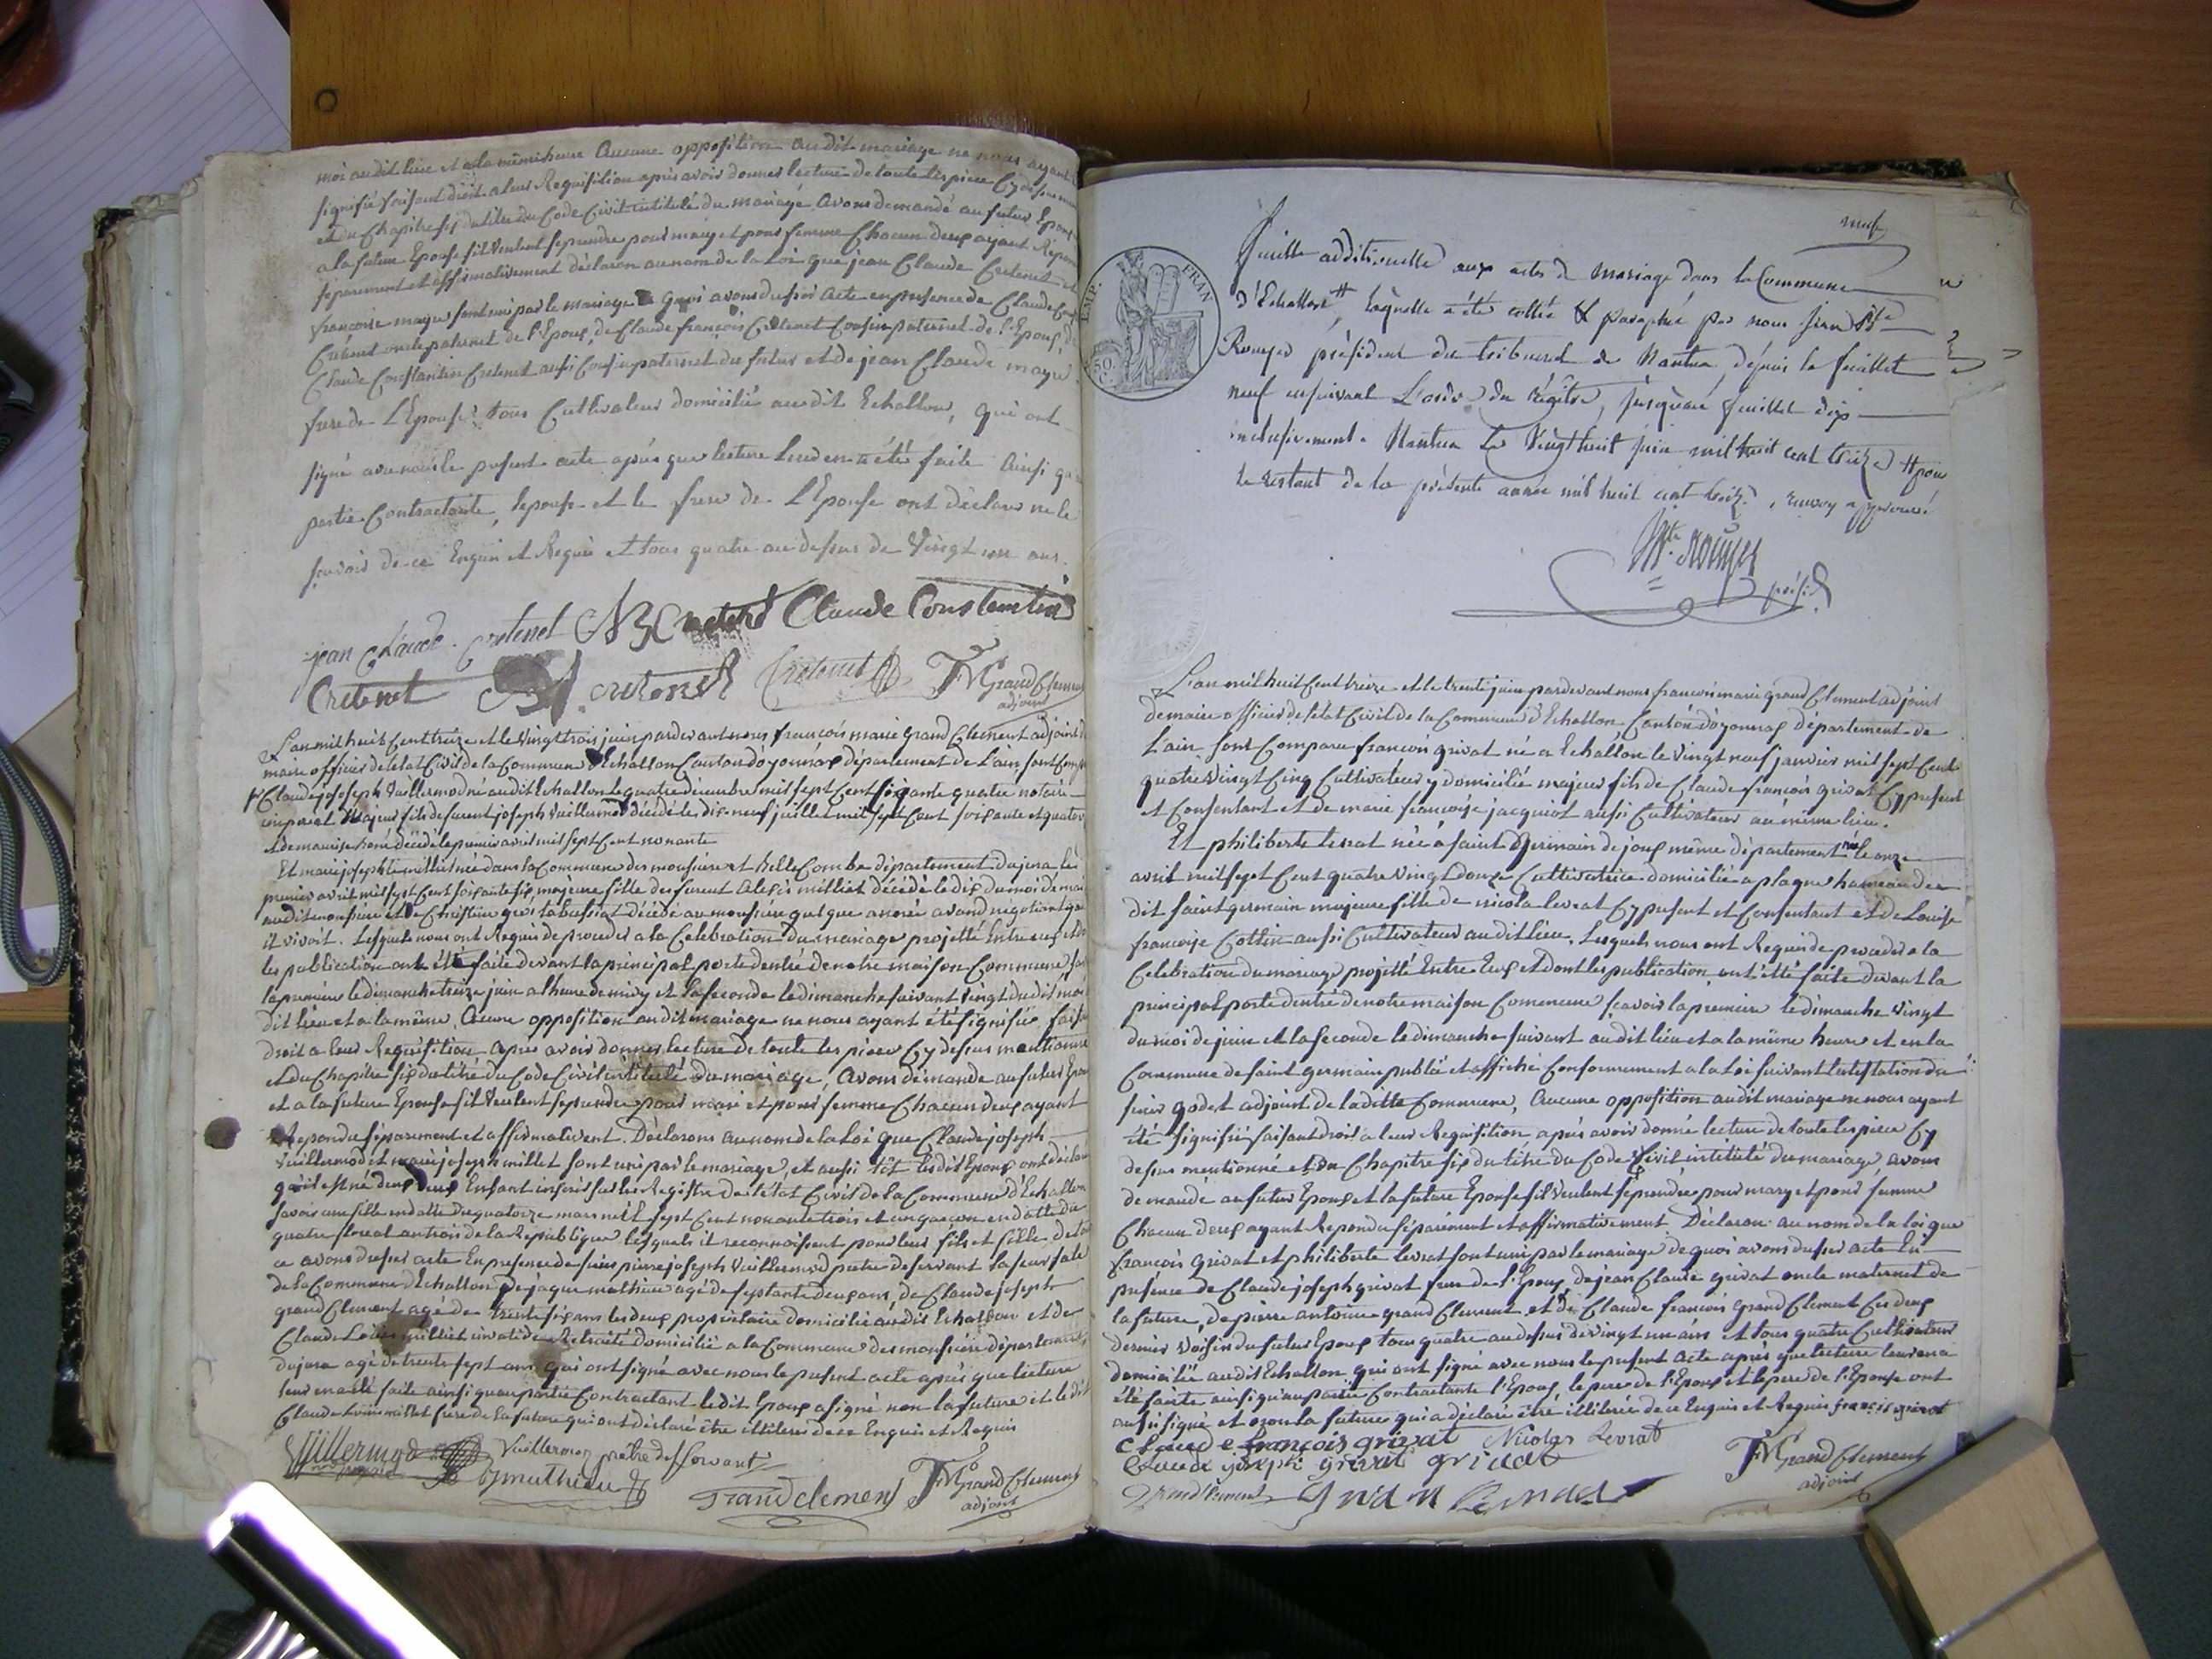 moi audit lieu et a la même heure Aucune opposition audit mariage ne nous ayant
signifié faisant droit a leur Requisition après avoir donner lecture de toute les piece Cy dessus
et du Chapitre six du titre du Code Civil intitulé du mariage Avons demandé au futur Epoux
a la future Epouse sil veulent se prendre pour mary et pour femme Chacun deux ayant Repon
separement et affirmativement déclaron au nom de la Loi que jean Claude Cretenet et
françoise mayer sont uni par le mariage de quoi avons dressé acte en presence de Claude
Cretenet oncle paternel de l'Epoux, de Claude françois Cretenet Cousin paternel de l'Epoux, de
Claude Constantin Cretenet aussi Cousin paternel du futur et de jean Claude mayer
frere de L'Epouse tous Cultivateur domicilié audit Echallon, qui ont
signé avec nous le present acte après que lecture leur en a été faite Ainsi qu
partie Contractante, lepouse et le frere de L'Epouse ont déclaré ne le
savoir de ce Enquis et Requis et tous quatre au dessus de Vingt un ans.
jean Claude cretenet Cretenet Claude Constantin
Cretenet cretenet Cretenet FM Grand Clement
adjoint
L'an mil huit Cent treize et le vingt trois juin pardevant nous françois marie grand Clement adjoint de
maire officier de letat Civil de la Commune d'Echallon Canton d'oyonnax département de Lain, sont Comparu
Claude joseph Vuillermod né audit Echallon le quatre décembre mil sept Cent soixante quatre notaire
imperial Majeur fils de feurent joseph Vuillermod décédé le dix neuf juillet mil sept Cent soixante et quatorze
et de marie décédé le premier avril mil sept Cent nonante
Et marie joseph millet née dans la Commune des moussiere et belle Combe département du jura le
premier avril mil sept Cent soixante six majeure fille de feurent Alexis milliet décédé le dix du moi de mai
audit moussiere et de Christine décédé au moussiere quelque année avand négotiant
il vivoit. Lesquels nous ont Requis de proceder a la Celebration du mariage projetté Entre eux et dont
les publication ont été faite devant la principal porte dentré de notre maison Commune savoir
la premiere le dimanche treize juin a lheure de midy et la seconde le dimanche suivant vingt dudit moi
dit lieu et a la même, Aucune opposition audit mariage ne nous ayant été signifiée faisant
droit a leur Requisition après avoir donner lecture de toute les piece Cy dessus mentionné
et du Chapitre six du titre du Code Civil intitulé du mariage, Avons demandé au futur Epoux
et a la future Epouse sil veulent se prendre pour mari et pour femme Chacun deux ayant
Repondu séparement et affirmativement. Déclarons au nom de la Loi que Claude joseph
Vuillermod et marie joseph millet sont uni par le mariage, et aussi tôt lesdit Epoux ont déclaré
qu'il est né deux Enfant inscris sur les Registre de l'état Civil de la Commune d'Echallon
savoir une fille en datte du quatorze mars mil sept Cent nonante trois et un garçon en datte du
quatre floreal an trois de la Republique lesquels il reconnoissent pour leur fils et fille de tout
ce avons dressé acte En presence de sieur pierre joseph Vuillermod pretre desservant la succursale
de la Commune d'Echallon de jaque mathieu agé de septante deux ans, de Claude joseph
grand Clement agé de trente six ans les deux propriétaire domicilié audit Echallon et de
Claude Louis milliet invalide Retraité domicilié a la Commune des moussiere département
du jura agé de trente sept ans qui ont signé avec nous le present acte après que lecture
leur en a été faite ainsi quau partie Contractant ledit Epoux a signé non la future et ledit
Claude Louis millet frere de la future qui ont déclaré être illitere de ce Enquis et Requis
Vuillermod Vuillermoz prêtre desservant
Cy mathieu Grand clement FM Grand Clement
adjoint
neuf
feuille additionnelle aux actes de mariage dans la Commune
d'Echallon #, laquelle a été cottée & paraphée par nous jean Bte
Rouyer président du tribunal de Nantua, depuis le feuillet
neuf en suivant L'ordre du régitre, jusqu'au feuillet dix
inclusivement. Nantua Le Vingt huit juin mil huit cent treize # pour
le restant de la présente année mil huit cent treize, renvoy approuvé
EMP. FRAN
50. C.
Bte. Rouyer
présid.
L'an mil huit Cent treize et le trente juin pardevant nous francois marie grand Clement adjoint
de maire officier de letat Civil de la Commune d'Echallon Canton d'oyonnax département de
Lain sont Comparu francois grivat né a Echallon le vingt neuf janvier mil sept Cent
quatre vingt Cinq Cultivateur y domicilié majeur fils de Claude francois grivat Cy present
et Consentant et de marie francoise jacquiot aussi Cultivateur au même lieu.
Et philiberte levrat née a saint Germain de joux même département née le onze
avril mil sept Cent quatre vingt douze Cultivatrice domicilié a plagne hameau du
dit saint germain majeure fille de nicola levrat Cy present et Consentant et de Louise
francoise Cottin aussi Cultivateur audit lieu, Lesquels nous ont Requis de proceder a la
Celebration du mariage projetté Entre Eux et dont les publication ont été faite devant la
principal porte dentré de notre maison Commune scavoir la premiere le dimanche vingt
du moi de juin et la seconde le dimanche suivant audit lieu et a la même heure et en la
Commune de saint germain publié et affiché Conformement a la Loi suivant l'attestation du
sieur godet adjoint de ladite Commune, Aucune opposition audit mariage ne nous ayant
été signifié faisant droit a leur Requisition après avoir donné lecture de toute les piece Cy
dessus mentionné et du Chapitre six du titre du Code Civil intitulé du mariage, avons
demandé au futur Epoux et la future Epouse sil veulent se prendre pour mary et pour femme
Chacun deux ayant Repondu séparément et affirmativement Déclaron au nom de la loi que
francois grivat et philiberte levrat sont uni par le mariage de quoi avons dressé acte En
presence de Claude joseph grivat frere de l'Epoux, de jean Claude grivat oncle maternel de
la future, de pierre antoine grand Clement et de Claude francois grand Clement Ces deux
dernier voisin du futur Epoux tous quatre au dessus de vingt un ans et tous quatre Cultivateur
domicilié audit Echallon qui ont signé avec nous le present acte après que lecture leur en a
été faite ainsi qu'au partie Contractante l'Epoux, le pere de l'Epoux et le pere de l'Epouse ont
aussi signé et non la future qui a déclaré être illiterée de ce Enquis et Requis françois grivat
Claude françois grivat Nicolas Levrat
Claude joseph grivat grivat FM Grand Clement
adjoint
Grand Clement